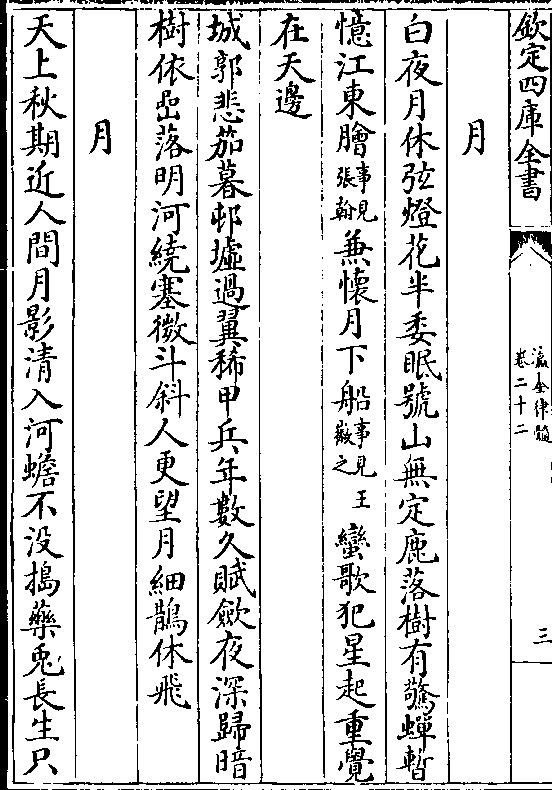 欽定四庫全書
瀛奎律髓
卷二十二
三
月
白夜月休弦燈花半委眠號山無定鹿落樹有驚蟬暫
憶江東鱠事見張翰兼懷月下船事見王徽之蠻歌犯星起重覺
在天邊
城郭悲笳暮邨墟過翼稀甲兵年數久賦斂夜深歸暗
樹依岩落明河繞塞微斗斜人更望月細鵲休飛
月
天上秋期近人間月影清入河蟾不没搗藥兎長生只